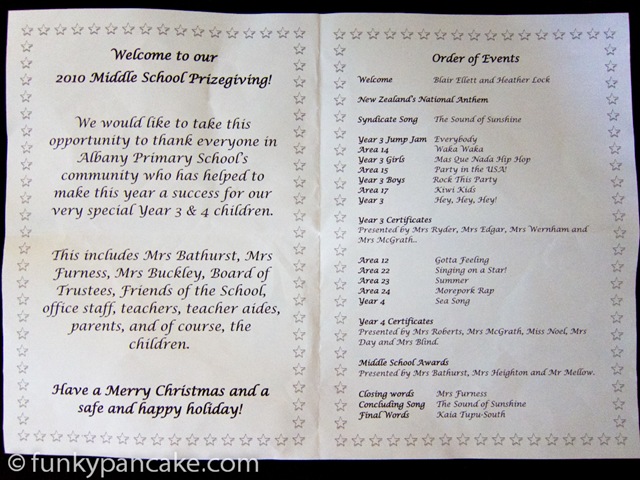 Welcome to our
2010 Middle School Prizegiving!
We would like to take this
opportunity to thank everyone in
Albany Primary School's
community who has helped to
make this year a success for our
very special Year 3 & 4 children.
This includes Mrs Bathurst, Mrs
Furness, Mrs Buckley, Board of
Trustees, Friends of the School,
office staff, teachers, teacher aides,
parents, and of course, the
children.
Have a Merry Christmas and a
safe and happy holiday!
Order of Events
Welcome Blair Ellett and Heather Lock
New Zealand's National Anthem
Syndicate Song The Sound of Sunshine
Year 3 Jump Jam Everybody
Area 14 Waka Waka
Year 3 Girls Mas Que Nada Hip Hop
Area 15 Party in the USA!
Year 3 Boys Rock This Party
Area 17 Kiwi Kids
Year 3 Hey, Hey, Hey!
Year 3 Certificates
Presented by Mrs Ryder, Mrs Edgar, Mrs Wernham and
Mrs McGrath..
Area 12 Gotta Feeling
Area 22 Singing on a Star!
Area 23 Summer
Area 24 Morepork Rap
Year 4 Sea Song
Year 4 Certificates
Presented by Mrs Roberts, Mrs McGrath, Miss Noel, Mrs
Day and Mrs Blind.
Middle School Awards
Presented by Mrs Bathurst, Mrs Heighton and Mr Mellow.
Closing words Mrs Furness
Concluding Song The Sound of Sunshine
Final Words Kaia Tupu-South
© funkypancake.com